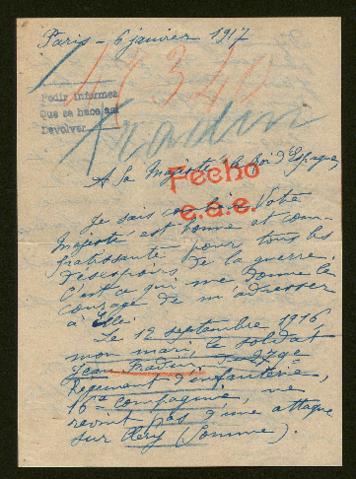 Paris - 6 janvier 1917
Pedir informes
Que se hace así
Devolver
Fradin
A Sa Majesté le Roi d'Espagne
Fecho
e.a.e.
Je sais combien Votre
Majesté est bonne et com-
patissante pour tous les
désespoirs de la guerre.
C'est ce qui me donne le
courage de m'adresser
à Elle.
Le 12 septembre 1916
mon mari, le soldat
Jean Fradin, du
Régiment d'infanterie,
16e compagnie, ne
revint pas d'une attaque
sur Cléry (Somme).